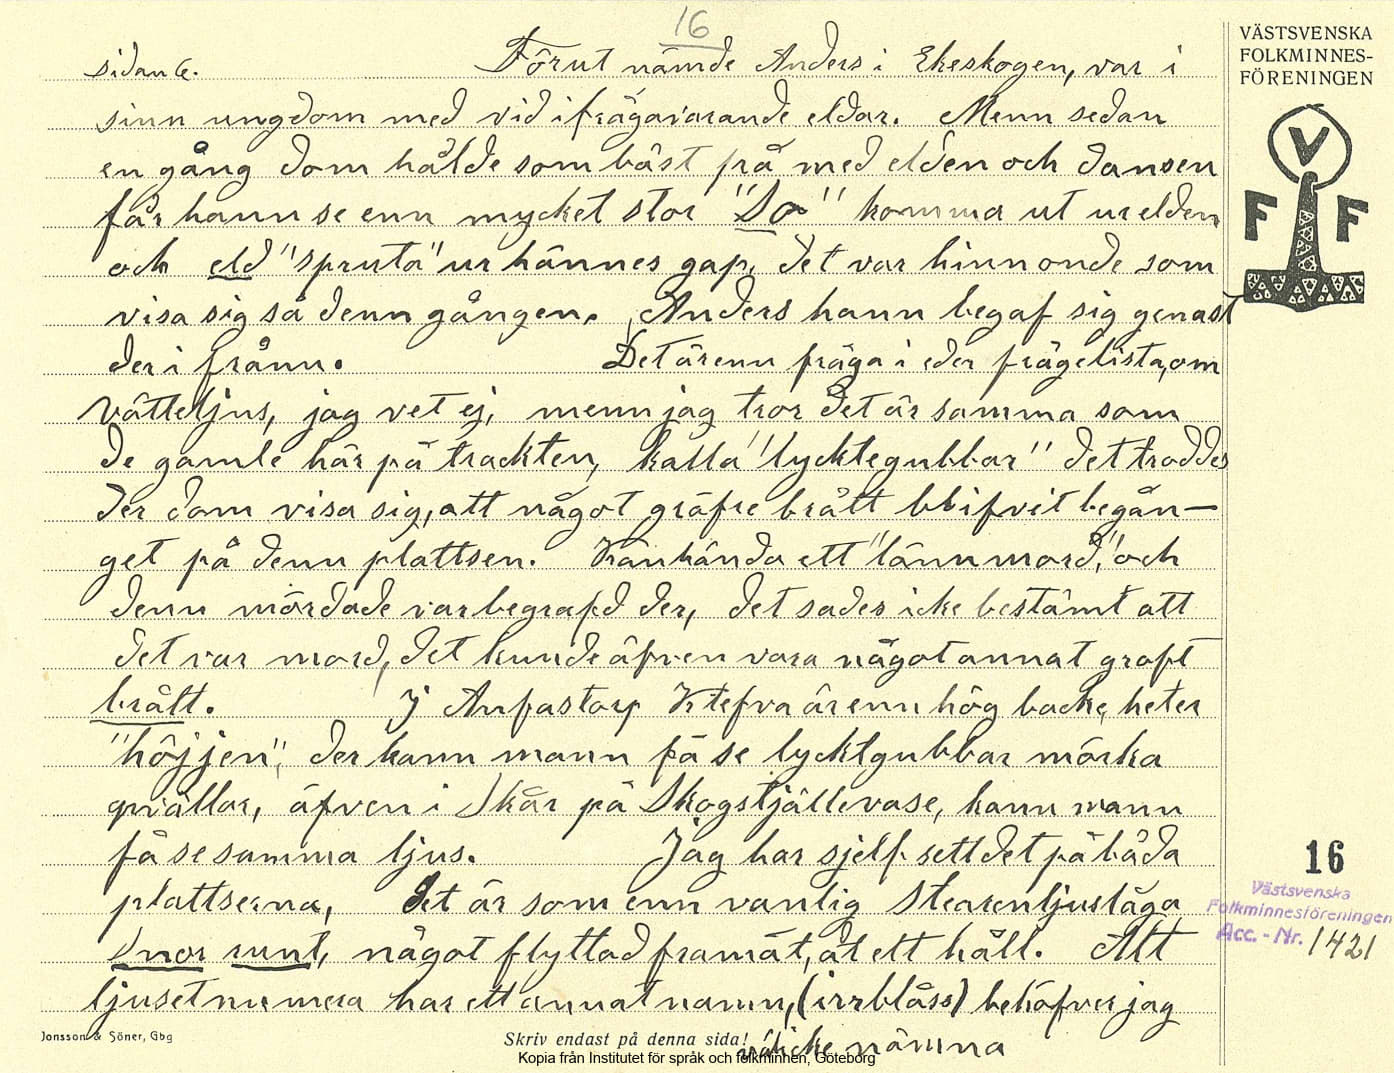 16
sidan 6. Förut nämde Anders i Ekeskogen, var i
sinn ungdom med vid ifrågavarande eldar. Menn sedan
en gång dom hålde som bäst på med elden och dansen
får hann se enn mycket stor "So" komma ut ur elden
och eld "spruta" ur hännes gap. Det var hinn onde som
visa sig så denn gången. Anders hann begaf sig genast
der i frånn. Det är enn fråga i eder frågelista, om
Vätteljus, jag vet ej, menn jag tror det är samma som
de gamle här på trackten, kalla "lycktegubbar" det troddes
der dom visa sig, att något gräfre brått blifvit begån-
get på denn plattsen. Kanhända ett "lännmord", och
denn mördade var begrafd der, det sades icke bestämt att
det var mord, det kunde äfven vara något annat groft
brått. I Anfastorp Ktefva är enn hög backe, heter
"höjjen", der kann mann få se lycktgubbar mörka
qvällar, äfven i Skår på Skogstjällevase, kann mann
få se samma ljus. Jag har sjelf sett det på båda
plattserna, det är som enn vanlig stearenljuslåga
Snor runt, något flyttad framåt, åt ett håll. Alt
ljuset numera har ett annat namn, (irrblåss) behöfver jag
väl icke nämna
VÄSTSVENSKA
FOLKMINNES-
FÖRENINGEN
V
F F
16
Västsvenska
Folkminnesföreningen
Acc. - Nr. 1421
Jonsson & Söner, Gbg
Skriv endast på denna sida!
Kopia från Institutet för språk och folkminnen, Göteborg